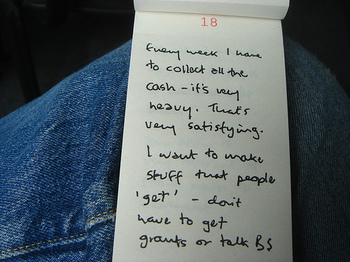 18
Every week I have
to collect all the
cash - it's very
heavy. That's
very satisfying.
I want to make
stuff that people
'get' - don't
have to get
grants or talk BS